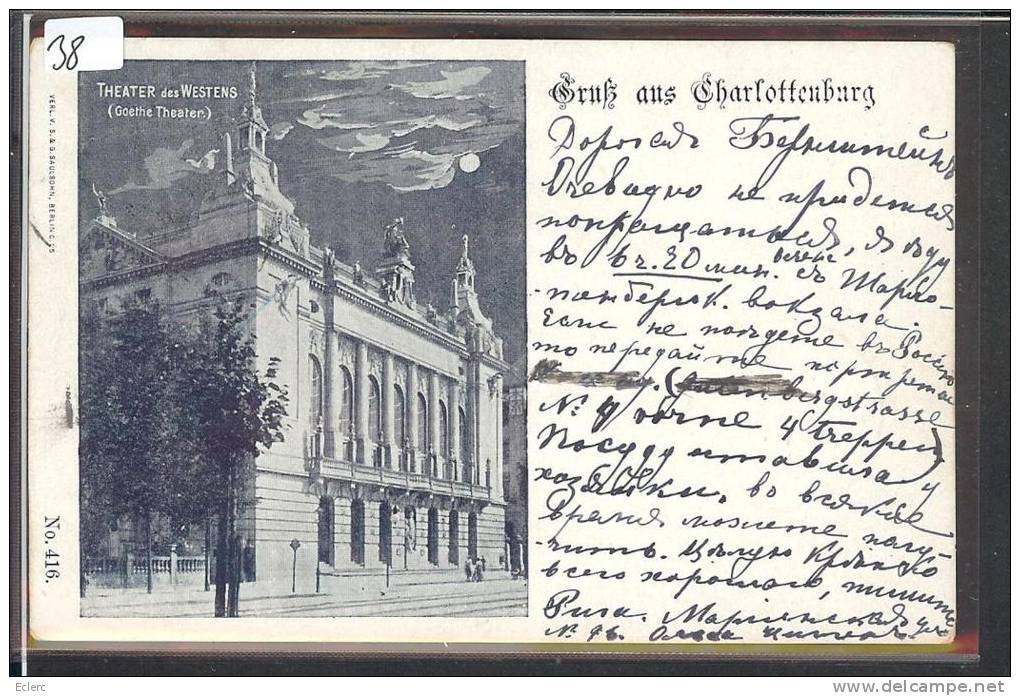 38
THEATER des WESTENS
(Goethe Theater.)
VERL. V. S. & G. SAULSOHN, BERLIN C.
No. 416.
Gruß aus Charlottenburg
Дорогая Бернштейнъ
Очевидно не придется
попрощаться, я ѣду
въ 6 ч. 20 мин. вечера съ Шарло-
вокзала.
Если не поѣдете въ Россію
то передайте портреты
bergstrasse
No. 9 vorne 4 Treppen)
Посуду оставила у
хозяйки, во всякое
время можете полу-
чить. Цѣлую крѣпко
всего хорошаго, пишите
Рига. Маріинская ул.
No. 96. Ольга
Eclerc
http://www.delcampe.net